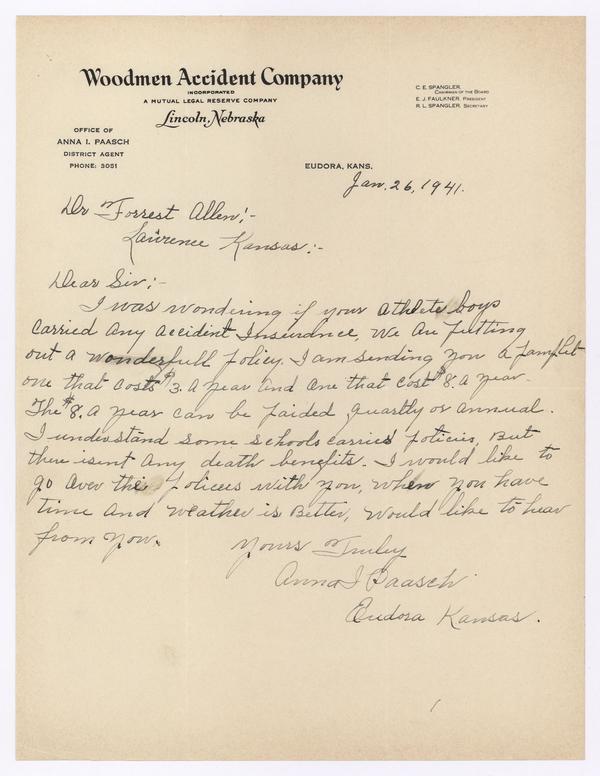 Woodmen Accident Company
INCORPORATED
A MUTUAL LEGAL RESERVE COMPANY
Lincoln, Nebraska
C. E. SPANGLER,
CHAIRMAN OF THE BOARD
E. J. FAULKNER, PRESIDENT
R. L. SPANGLER, SECRETARY
OFFICE OF
ANNA I. PAASCH
DISTRICT AGENT
PHONE: 3051
EUDORA, KANS.
Jan. 26, 1941.
Dr Forrest Allen;-
Lawrence Kansas:-
Dear Sir;-
I was wondering if your athlete boys
carried any accident Insurance, We are putting
out a wonderfull policy. I am sending you a pamflet
one that costs $3. a year and one that cost $8. a year.
The $8. a year can be paided quartly or annual.
I understand some schools carried policies, But
there isent any death benefits. I would like to
go over the policees with you, when you have
time and weather is Better, would like to hear
from you.
Yours Truley
Anna I Paasch
Eudora Kansas.